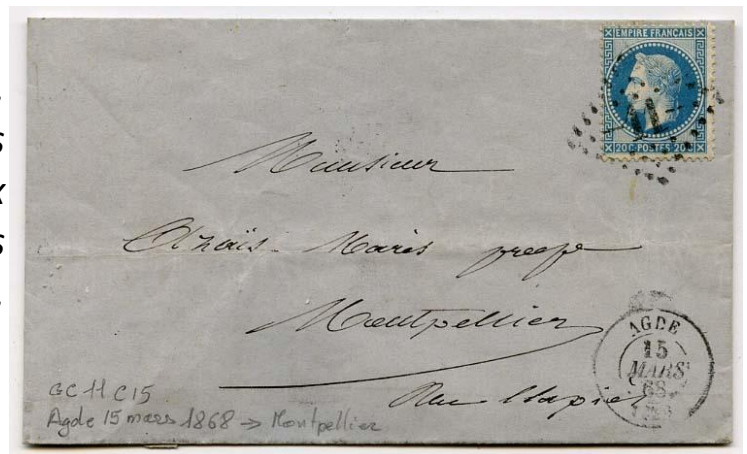 EMPIRE FRANÇAIS
11
20 C POSTES 20 C
Monsieur
Marès
Montpellier
Rue
AGDE
15
MARS
68
GC 11 C15
Agde 15 mars 1868 → Montpellier